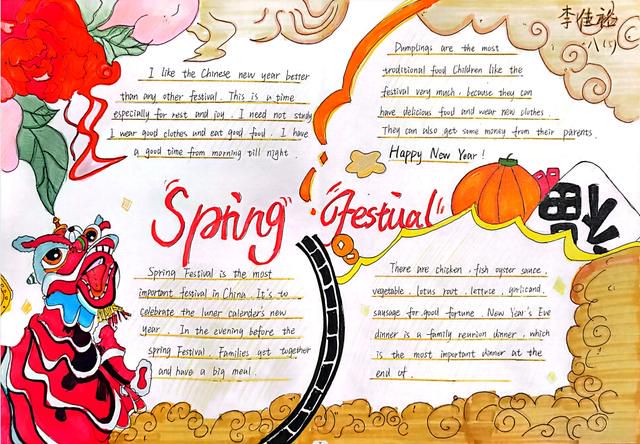 李佳裕
八(1)
I like the Chinese new year better
than any other festival. This is a time
especially for rest and joy. I need not study
I wear good clothes and eat good food. I have
a good time from morning till night.
Dumplings are the most
traditional food Children like the
festival very much, because they can
have delicious food and wear new clothes.
They can also get some money from their parents.
Happy New Year!
"Spring" "Festival"
福
Spring Festival is the most
important festival in China. It's to
celebrate the luner calender's new
year. In the evening before the
spring Festival. Families get together
and have a big meal.
There are chicken, fish oyster sauce,
vegetable, lotus root, lettuce, garlicand,
sausage for good fortune. New Year's Eve
dinner is a family reunion dinner, which
is the most important dinner at the
end of.